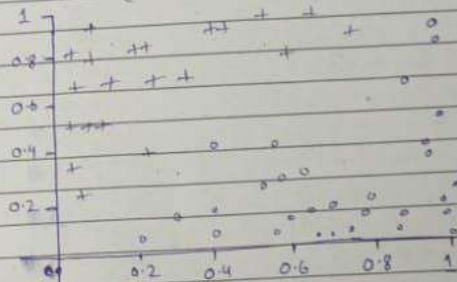 1
0.8
0.6
0.4
0.2
0.0
0.2 0.4 0.6 0.8 1